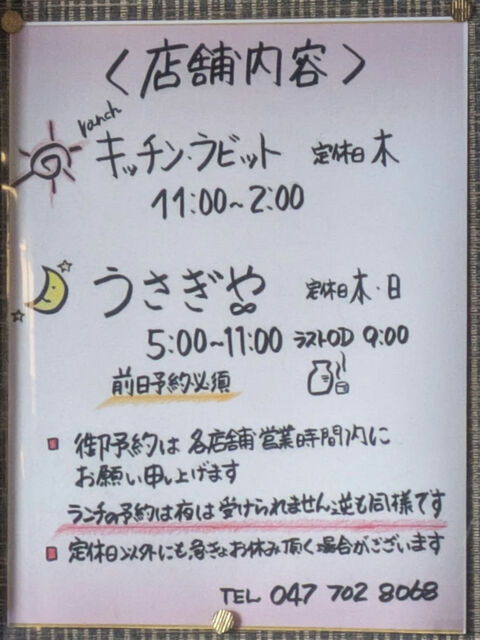 〈店舗内容〉
ranch
キッチン・ラビット 定休日 木
11:00~2:00
うさぎや 定休日 木・日
5:00~11:00 ラストOD 9:00
前日予約必須
御予約は 各店舗営業時間内に
お願い申し上げます
ランチの予約は夜は受けられません逆も同様です
定休日以外にも急きょお休み頂く場合がございます
TEL 047 702 8068